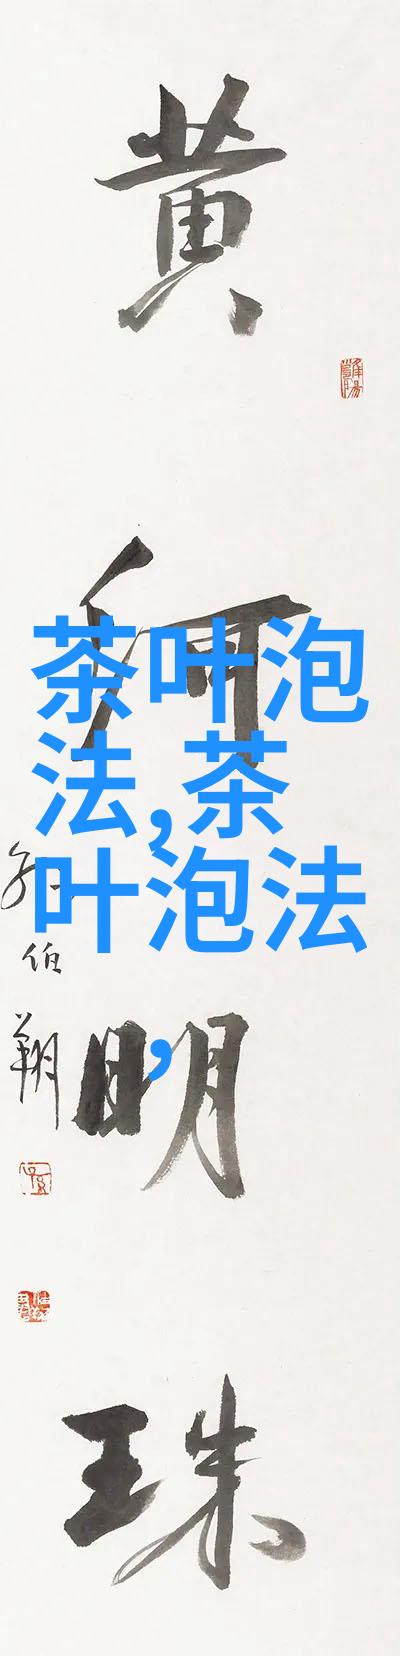 黄
河
明
珠
茶叶泡
法,茶
叶泡法
,
伯
翔